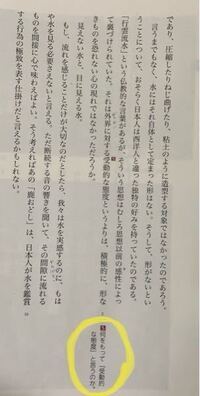 であり、圧縮したりねじ曲げたり、粘土のように造型する対象ではなかったのであろう。
言うまでもなく、水にはそれ自体として定まった形はない。そうして、形がないとい
うことについて、おそらく日本人は西洋人と違った独特の好みを持っていたのである。
「行雲流水」という仏教的な言葉があるが、そういう思想はむしろ思想以前の感性によっ
て裏づけられていた。それは外界に対する受動的な態度というよりは、積極的に、形な
きものを恐れない心の現れではなかっただろうか。
見えない水と、目に見える水。
もし、流れを感じることだけが大切なのだとしたら、我々は水を実感するのに、もは
や水を見る必要さえないと言える。ただ断続する音の響きを聞いて、その間隙に流れる
ものを間接に心で味わえばよい。そう考えればあの「鹿おどし」は、日本人が水を鑑賞
する行為の極致を表す仕掛けだと言えるかもしれない。
5 何をもって「受動的
な態度」と言うのか。